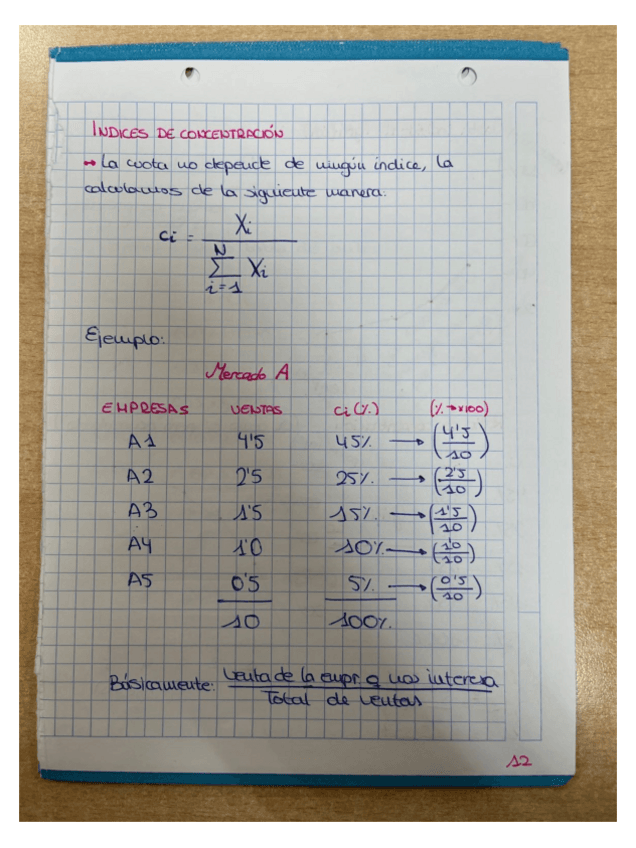 ÍNDICES DE CONCENTRACIÓN
→ La cuota no depende de ningún índice, la
calculamos de la siguiente manera:
Ci = Xi / N Σ i=1 Xi
Ejemplo:
Mercado A
EMPRESAS VENTAS Ci (%) (% → x100)
A1 4'5 45% → (4'5/10)
A2 2'5 25% → (2'5/10)
A3 1'5 15% → (1'5/10)
A4 1'0 10% → (1'0/10)
A5 0'5 5% → (0'5/10)
10 100%
Básicamente: venta de la empr q nos interesa
Total de ventas
12